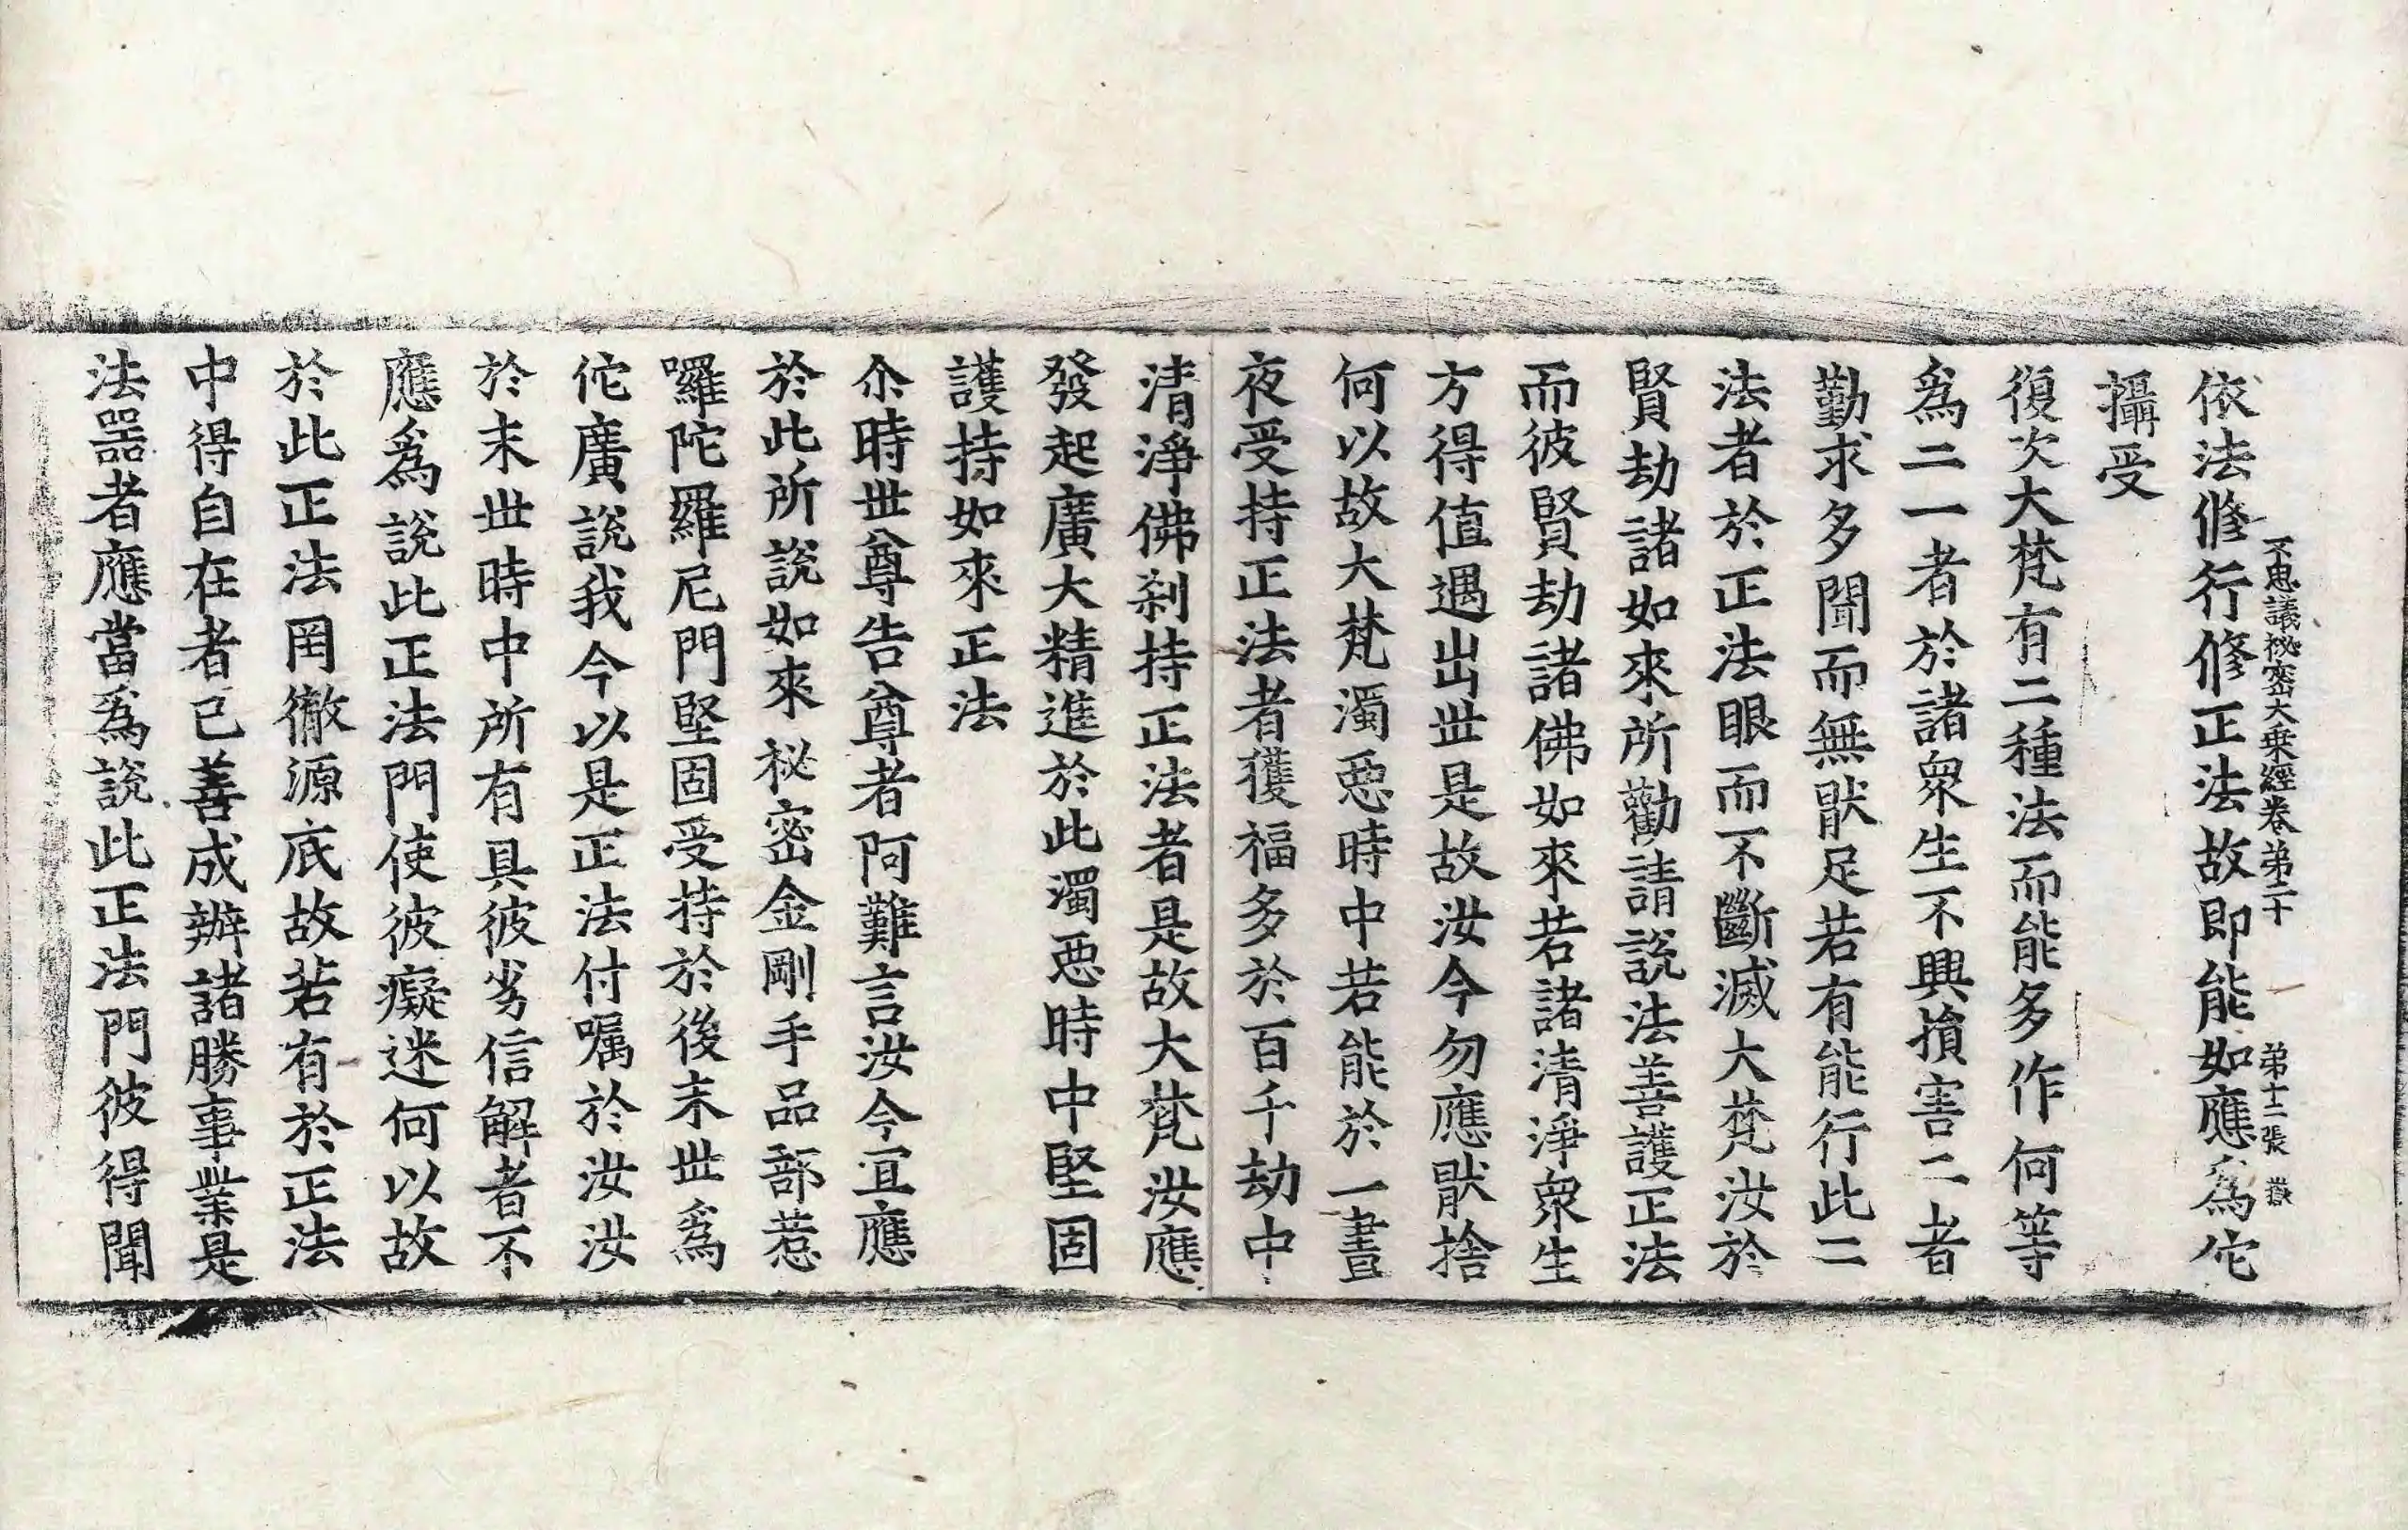 不思議祕密大乗經卷苐二十 苐十二張 㠜
依法修行修正法故即能如應爲佗
攝受
復次大梵有二種法而能多作何等
爲二一者於諸衆生不興損害二者
勤求多聞而無猒足若有能行此二
法者於正法眼而不斷滅大梵汝於
賢劫諸如來所勸請說法善護正法
而彼賢劫諸佛如來若諸清淨衆生
方得值遇出世是故汝今勿應猒捨
何以故大梵濁惡時中若能於一晝
夜受持正法者獲福多於百千劫中
清淨佛剎持正法者是故大梵汝應
發起廣大精進於此濁惡時中堅固
護持如來正法
尒時世尊告尊者阿難言汝今宜應
於此所說如來祕密金剛手品部惹
囉陀羅尼門堅固受持於後末世爲
佗廣說我今以是正法付囑於汝汝
於末世時中所有具彼劣信解者不
應爲說此正法門使彼癡迷何以故
於此正法罔徹源底故若有於正法
中得自在者已善成辦諸勝事業是
法器者應當爲說此正法門彼得聞